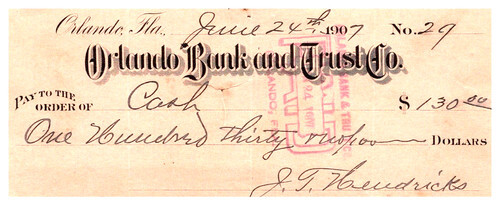 Orlando, Fla., June 24th, 1907 No. 29
Orlando Bank and Trust Co.
PAY TO THE
ORDER OF Cash $ 130 00
One Hundred thirty no/100 DOLLARS
J. T. Hendricks
BANK & TRU
PAID
ORLANDO, F